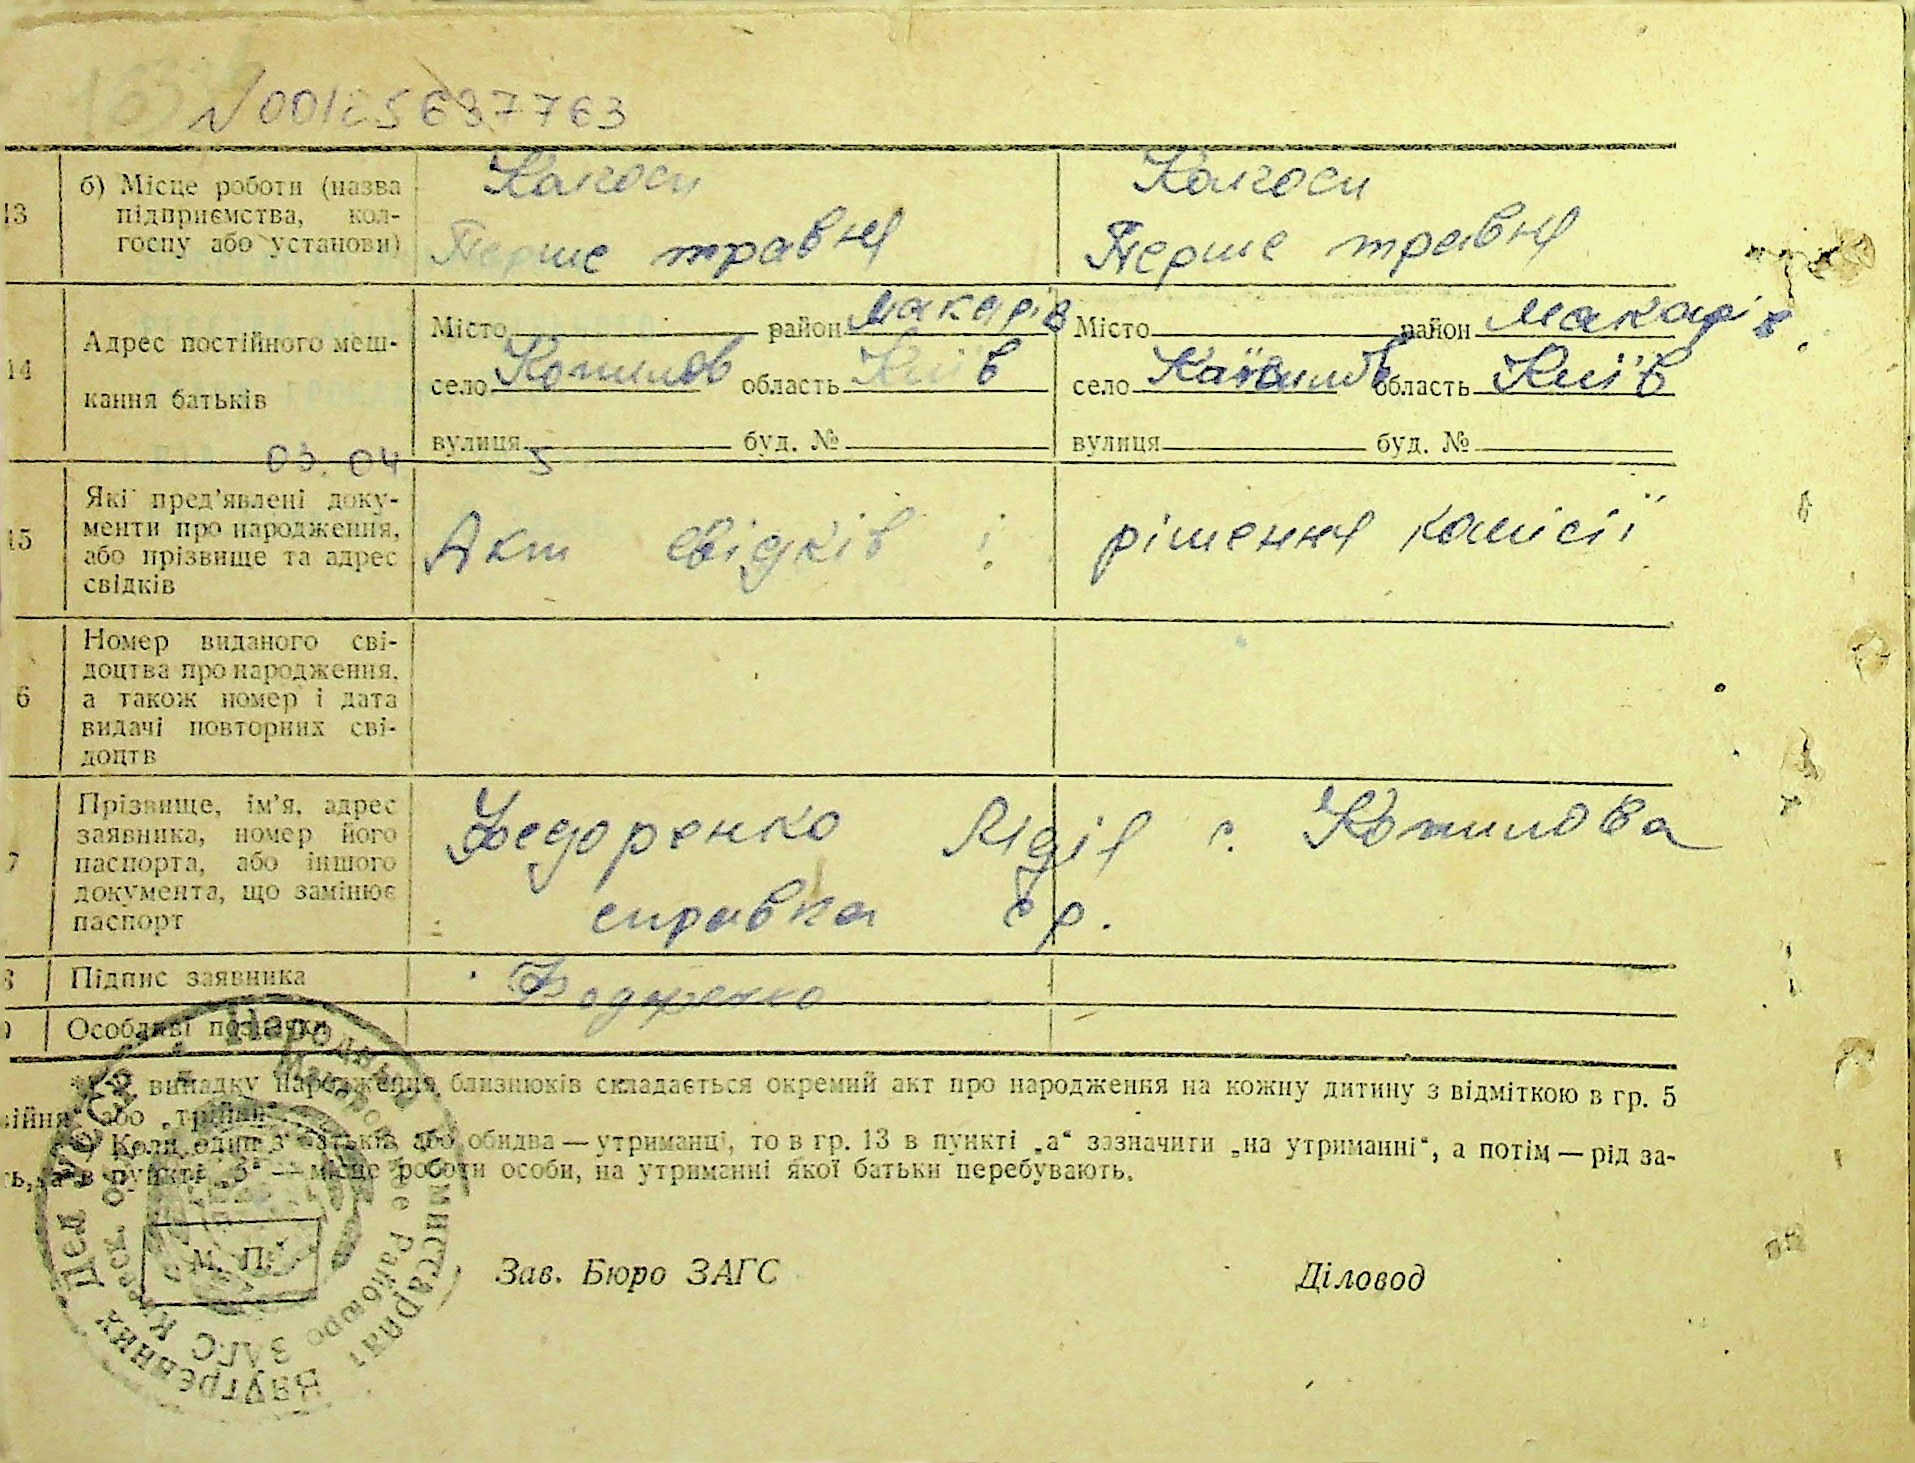 N00125637763
13 б) Місце роботи (назва підприємства, колгоспу або установи)
Колгосп
Перше травня
Колгосп
Перше травня
14 Адрес постійного мешкання батьків
Місто район Макарів
село Копилов область Київ
вулиця буд. №
Місто район Макарів
село Копилов область Київ
вулиця буд. №
03.04
15 Які пред'явлені документи про народження, або прізвище та адрес свідків
Акт свідків і рішення комісії
6 Номер виданого свідоцтва про народження, а також номер і дата видачі повторних свідоцтв
7 Прізвище, ім'я, адрес заявника, номер його паспорта, або іншого документа, що замінює паспорт
Федоренко Лідія с. Копилова
справка с/р.
8 Підпис заявника
Федоренко
Особливі позначки
*) У випадку народження близнюків складається окремий акт про народження на кожну дитину з відміткою в гр. 5
або „трійня".
Коли один з батьків або обидва — утриманці, то в гр. 13 в пункті „а" зазначити „на утриманні", а потім — рід за-
ть, а в пункті „б" — місце роботи особи, на утриманні якої батьки перебувають.
М. П.
Зав. Бюро ЗАГС
Діловод
Народный Комиссариат Внутренних Дел УССР
Райбюро ЗАГС Киевск. обл.